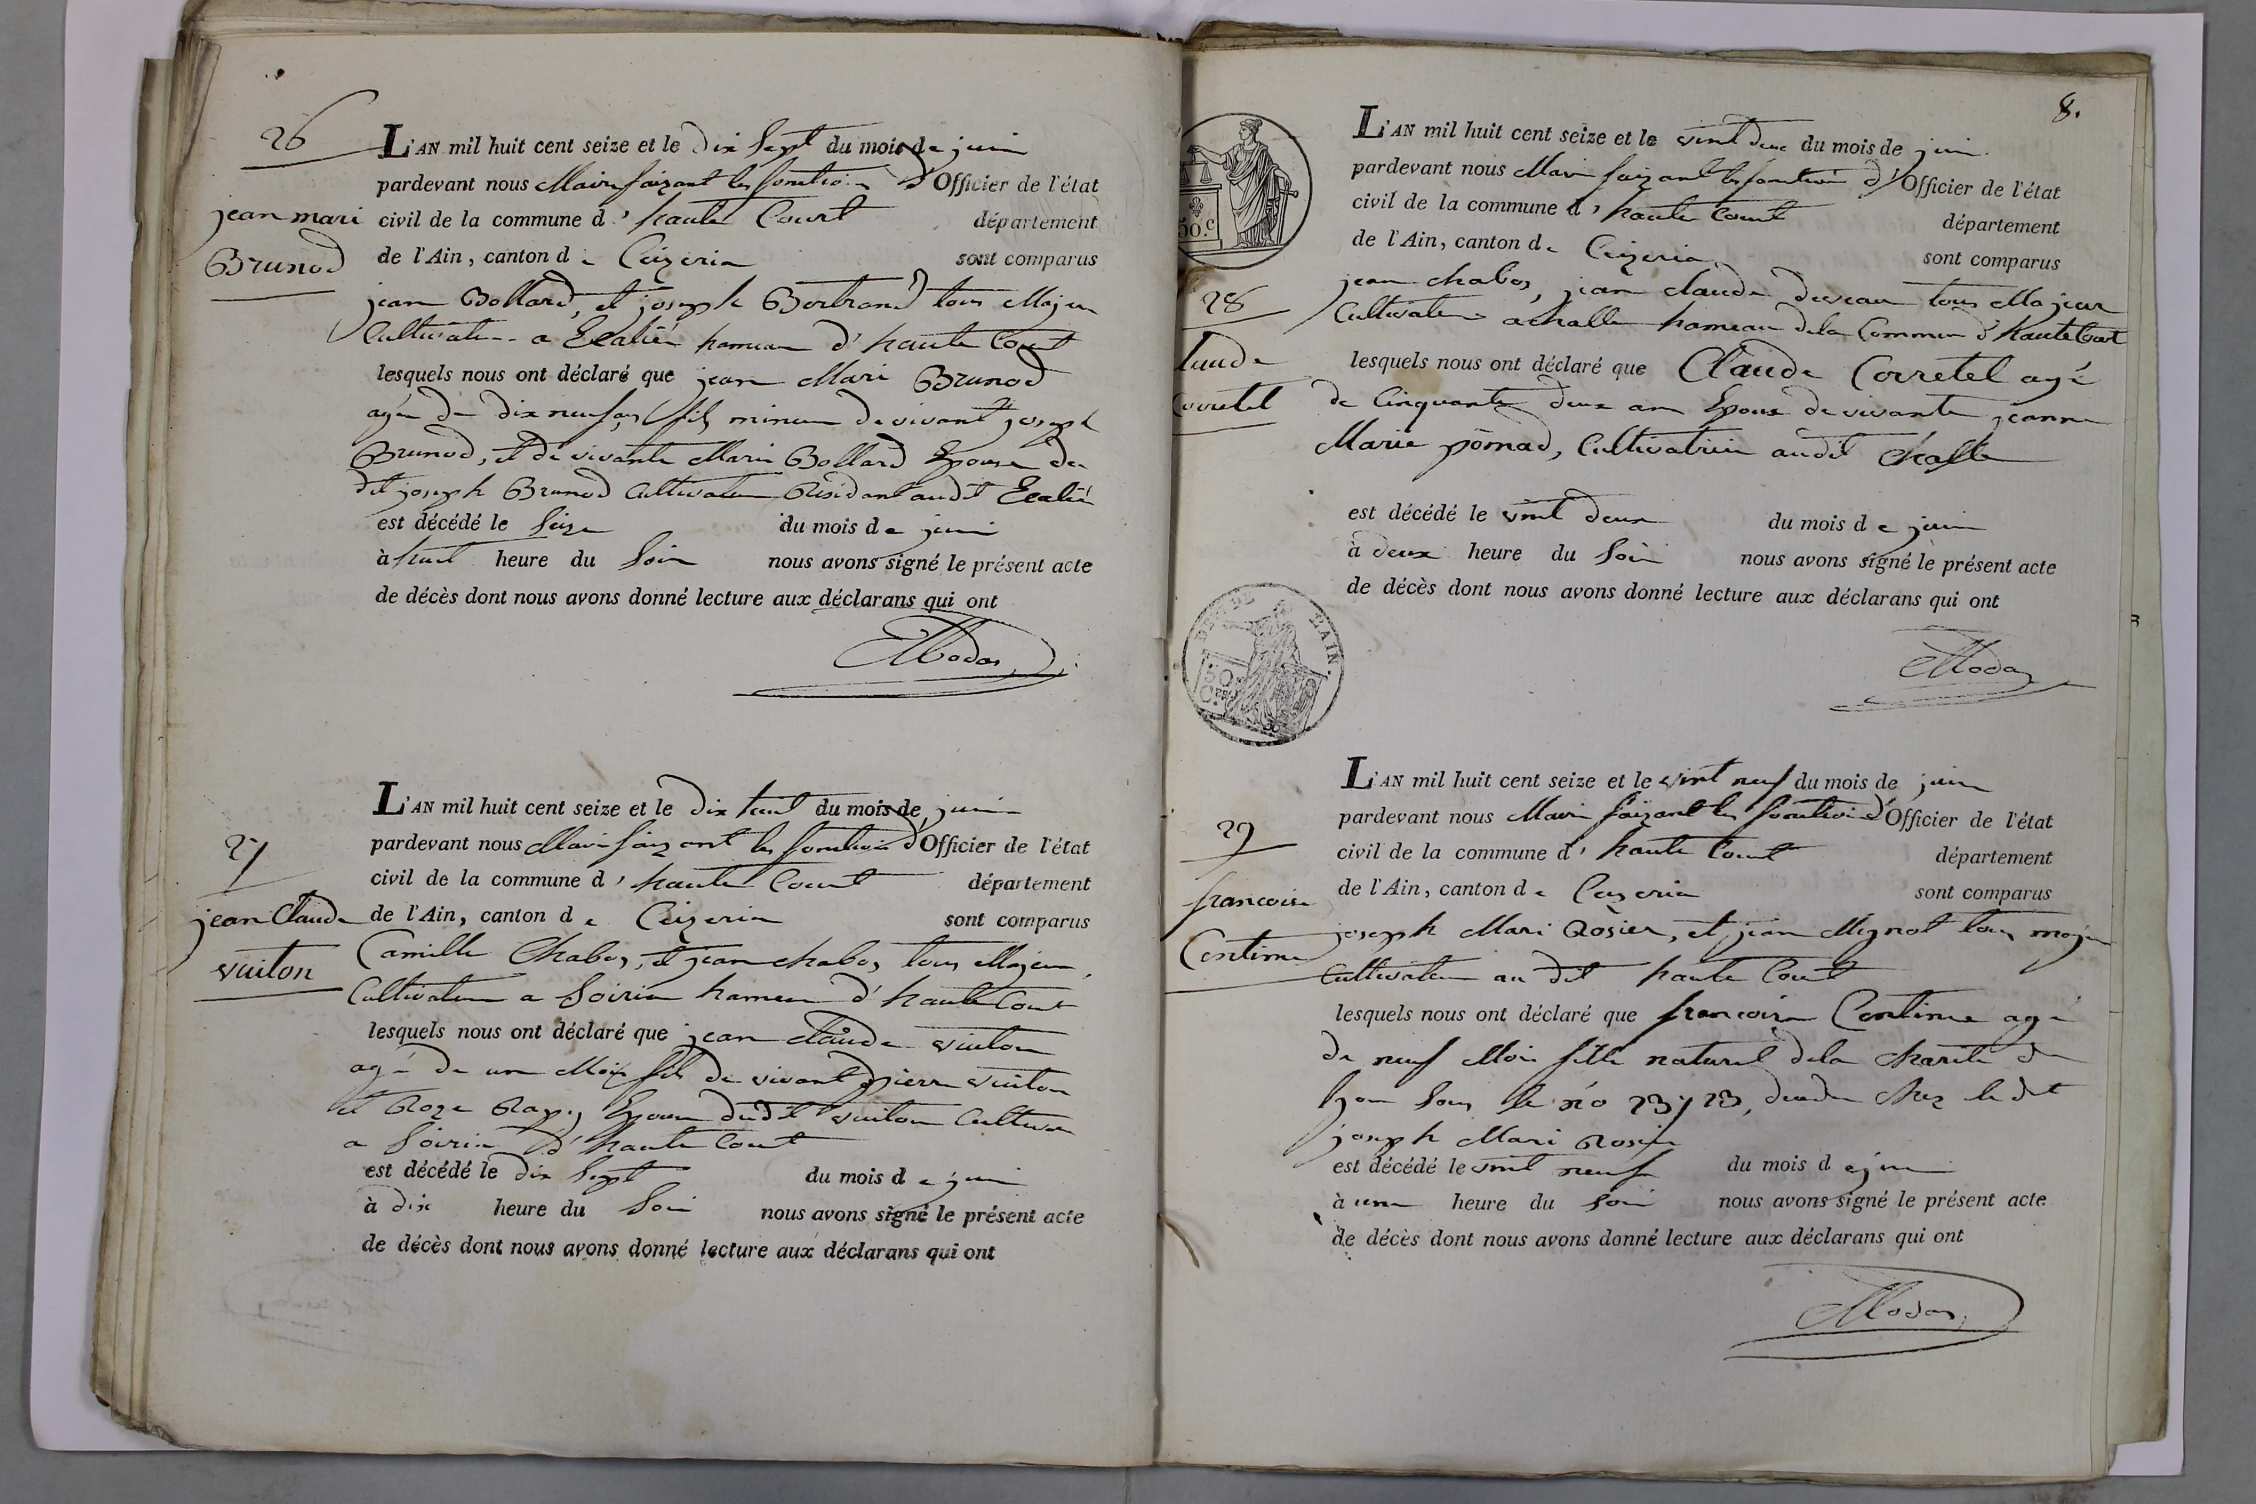 26
jean mari
Brunod
L'AN mil huit cent seize et le dix sept du mois de juin
pardevant nous Maire faizant les fonction d'Officier de l'état
civil de la commune d'haute Court département
de l'Ain, canton de Ceizeria sont comparus
jean Bollard, et joseph Bertrand tous Majeur
Cultivateur a hameau d'haute Court
lesquels nous ont déclaré que jean Mari Brunod
agée de dix neuf ans fils mineur de vivant joseph
Brunod, et de vivante Marie Bollard Epouse du
dit joseph Brunod Cultivateur Residant audit
est décédé le seize du mois de juin
à huit heure du Soir nous avons signé le présent acte
de décès dont nous avons donné lecture aux déclarans qui ont
27
jean Claude
vuiton
L'AN mil huit cent seize et le dix huit du mois de juin
pardevant nous Maire faizant les fonction d'Officier de l'état
civil de la commune d'haute Court département
de l'Ain, canton de Ceizeria sont comparus
Camille Chabos, et jean chabos tous Majeur
Cultivateur a Soiria hameau d'haute Court
lesquels nous ont déclaré que jean Claude vuiton
agé de un Mois fils de vivant pierre vuiton
et Roze Epouse dudit vuiton
a Soiria d'haute Court
est décédé le dix Sept du mois de juin
à dix heure du Soir nous avons signé le présent acte
de décès dont nous avons donné lecture aux déclarans qui ont
8.
50.c
28
Claude
Corretel
L'AN mil huit cent seize et le vint deux du mois de juin
pardevant nous Maire faizant les fonction d'Officier de l'état
civil de la commune d'haute Court département
de l'Ain, canton de Ceizeria sont comparus
jean chabos, jean claude tous Majeur
Cultivateur a challe hameau de la Commune d'haute Court
lesquels nous ont déclaré que Claude Corretel agé
de Cinquante deux ans Epoux de vivante jeanne
Marie pomad, Cultivatrice audit challe
est décédé le vint deux du mois de juin
à deux heure du Soir nous avons signé le présent acte
de décès dont nous avons donné lecture aux déclarans qui ont
DE L'AIN.
50
29
francoise
Centime
L'AN mil huit cent seize et le vint neuf du mois de juin
pardevant nous Maire faizant les fonction d'Officier de l'état
civil de la commune d'haute Court département
de l'Ain, canton de Ceizeria sont comparus
joseph Mari Rosier, et jean Mignot tous majeur
Cultivateur au dit haute Court
lesquels nous ont déclaré que francoise Centime agé
de neuf Mois fille naturel de la charité de
lyon Sous le no chez le dit
joseph Mari Rosier
est décédé le vint neuf du mois de juin
à une heure du Soir nous avons signé le présent acte
de décès dont nous avons donné lecture aux déclarans qui ont